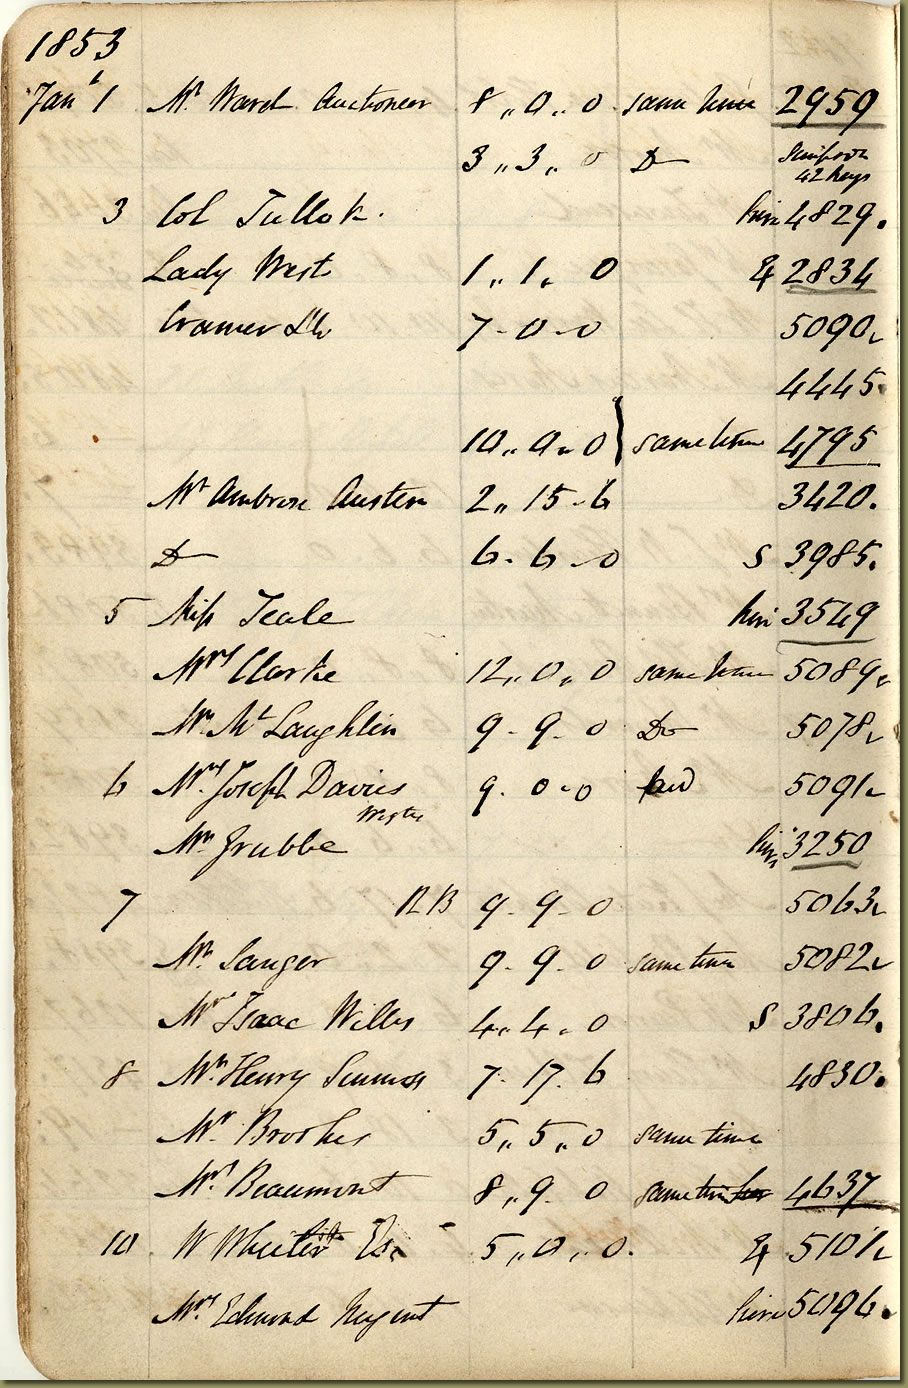 1853
Jany 1 Mr Ward Auctioneer 8 ,, 0 ,, 0 same time 2959
3 ,, 3 ,, 0 Do
42 keys
3 Col Tullok. hire 4829.
Lady West 1 ,, 1 ,, 0 Ex 2834
Cramer & Co 7 - 0 - 0 5090
4445.
10 ,, 0 ,, 0 } same time 4795
Mr Ambrose Austin 2 ,, 15 - 6 3420.
Do 6 - 6 - 0 S 3985.
5 Miss Teale hire 3549
Mrs Clarke 12 ,, 0 ,, 0 same time 5089
Mr McLaughlin 9 - 9 - 0 Do 5078
6 Mrs Joseph Davies 9 - 0 - 0 paid 5091
Mr Grubbe hire 3250
7 RB 9 - 9 - 0 5063
Mr Sanger 9 - 9 - 0 same time 5082
Mrs Isaac Willis 4 ,, 4 ,, 0 S 3806.
8 Mr Henry 7 - 17 - 6 4830.
Mr Brookes 5 ,, 5 ,, 0 same time
Mrs Beaumont 8 ,, 9 - 0 same time 4637
10 W Esq 5 ,, 0 ,, 0. Ex 5101
Mrs Edmund Nugent hire 5096.